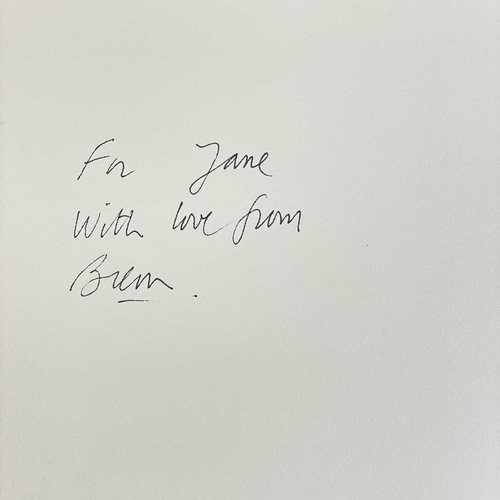 For Jane
With love from
Bream.